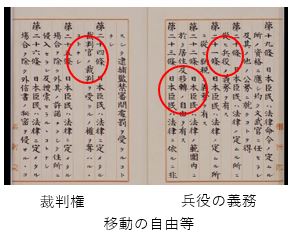 第十九條日本臣民ハ法律命令ノ定ムル
所ノ資格ニ應シ均ク文武官ニ任セラレ
及其ノ他ノ公務ニ就クコトヲ得
第二十條日本臣民ハ法律ノ定ムル所ニ
從ヒ兵役ノ義務ヲ有ス
第二十一條日本臣民ハ法律ノ定ムル所ニ
從ヒ納税ノ義務ヲ有ス
第二十二條日本臣民ハ法律ノ範圍内ニ
於テ居住及移轉ノ自由ヲ有ス
第二十三條日本臣民ハ法律ニ依ルニ非
スシテ逮捕監禁審問處罰ヲ受クルコト
ナシ
第二十四條日本臣民ハ法律ニ定メタル
裁判官ノ裁判ヲ受クルノ權ヲ奪ハル
コトナシ
第二十五條日本臣民ハ法律ニ定メタル
場合ヲ除ク外其ノ許諾ナクシテ住所ニ
侵入セラレ及搜索セラルヽコトナシ
第二十六條日本臣民ハ法律ニ定メタル
場合ヲ除ク外信書ノ祕密ヲ侵サルヽコ
裁判権
兵役の義務
移動の自由等